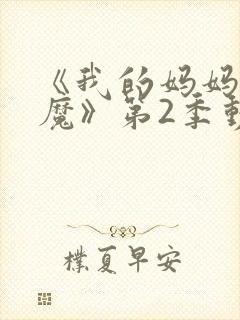 《我的妈妈
魔》第2季
朴夏早安